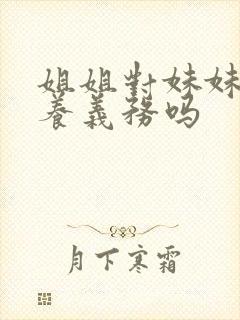 姐姐對妹妹
養義務吗
月下寒霜